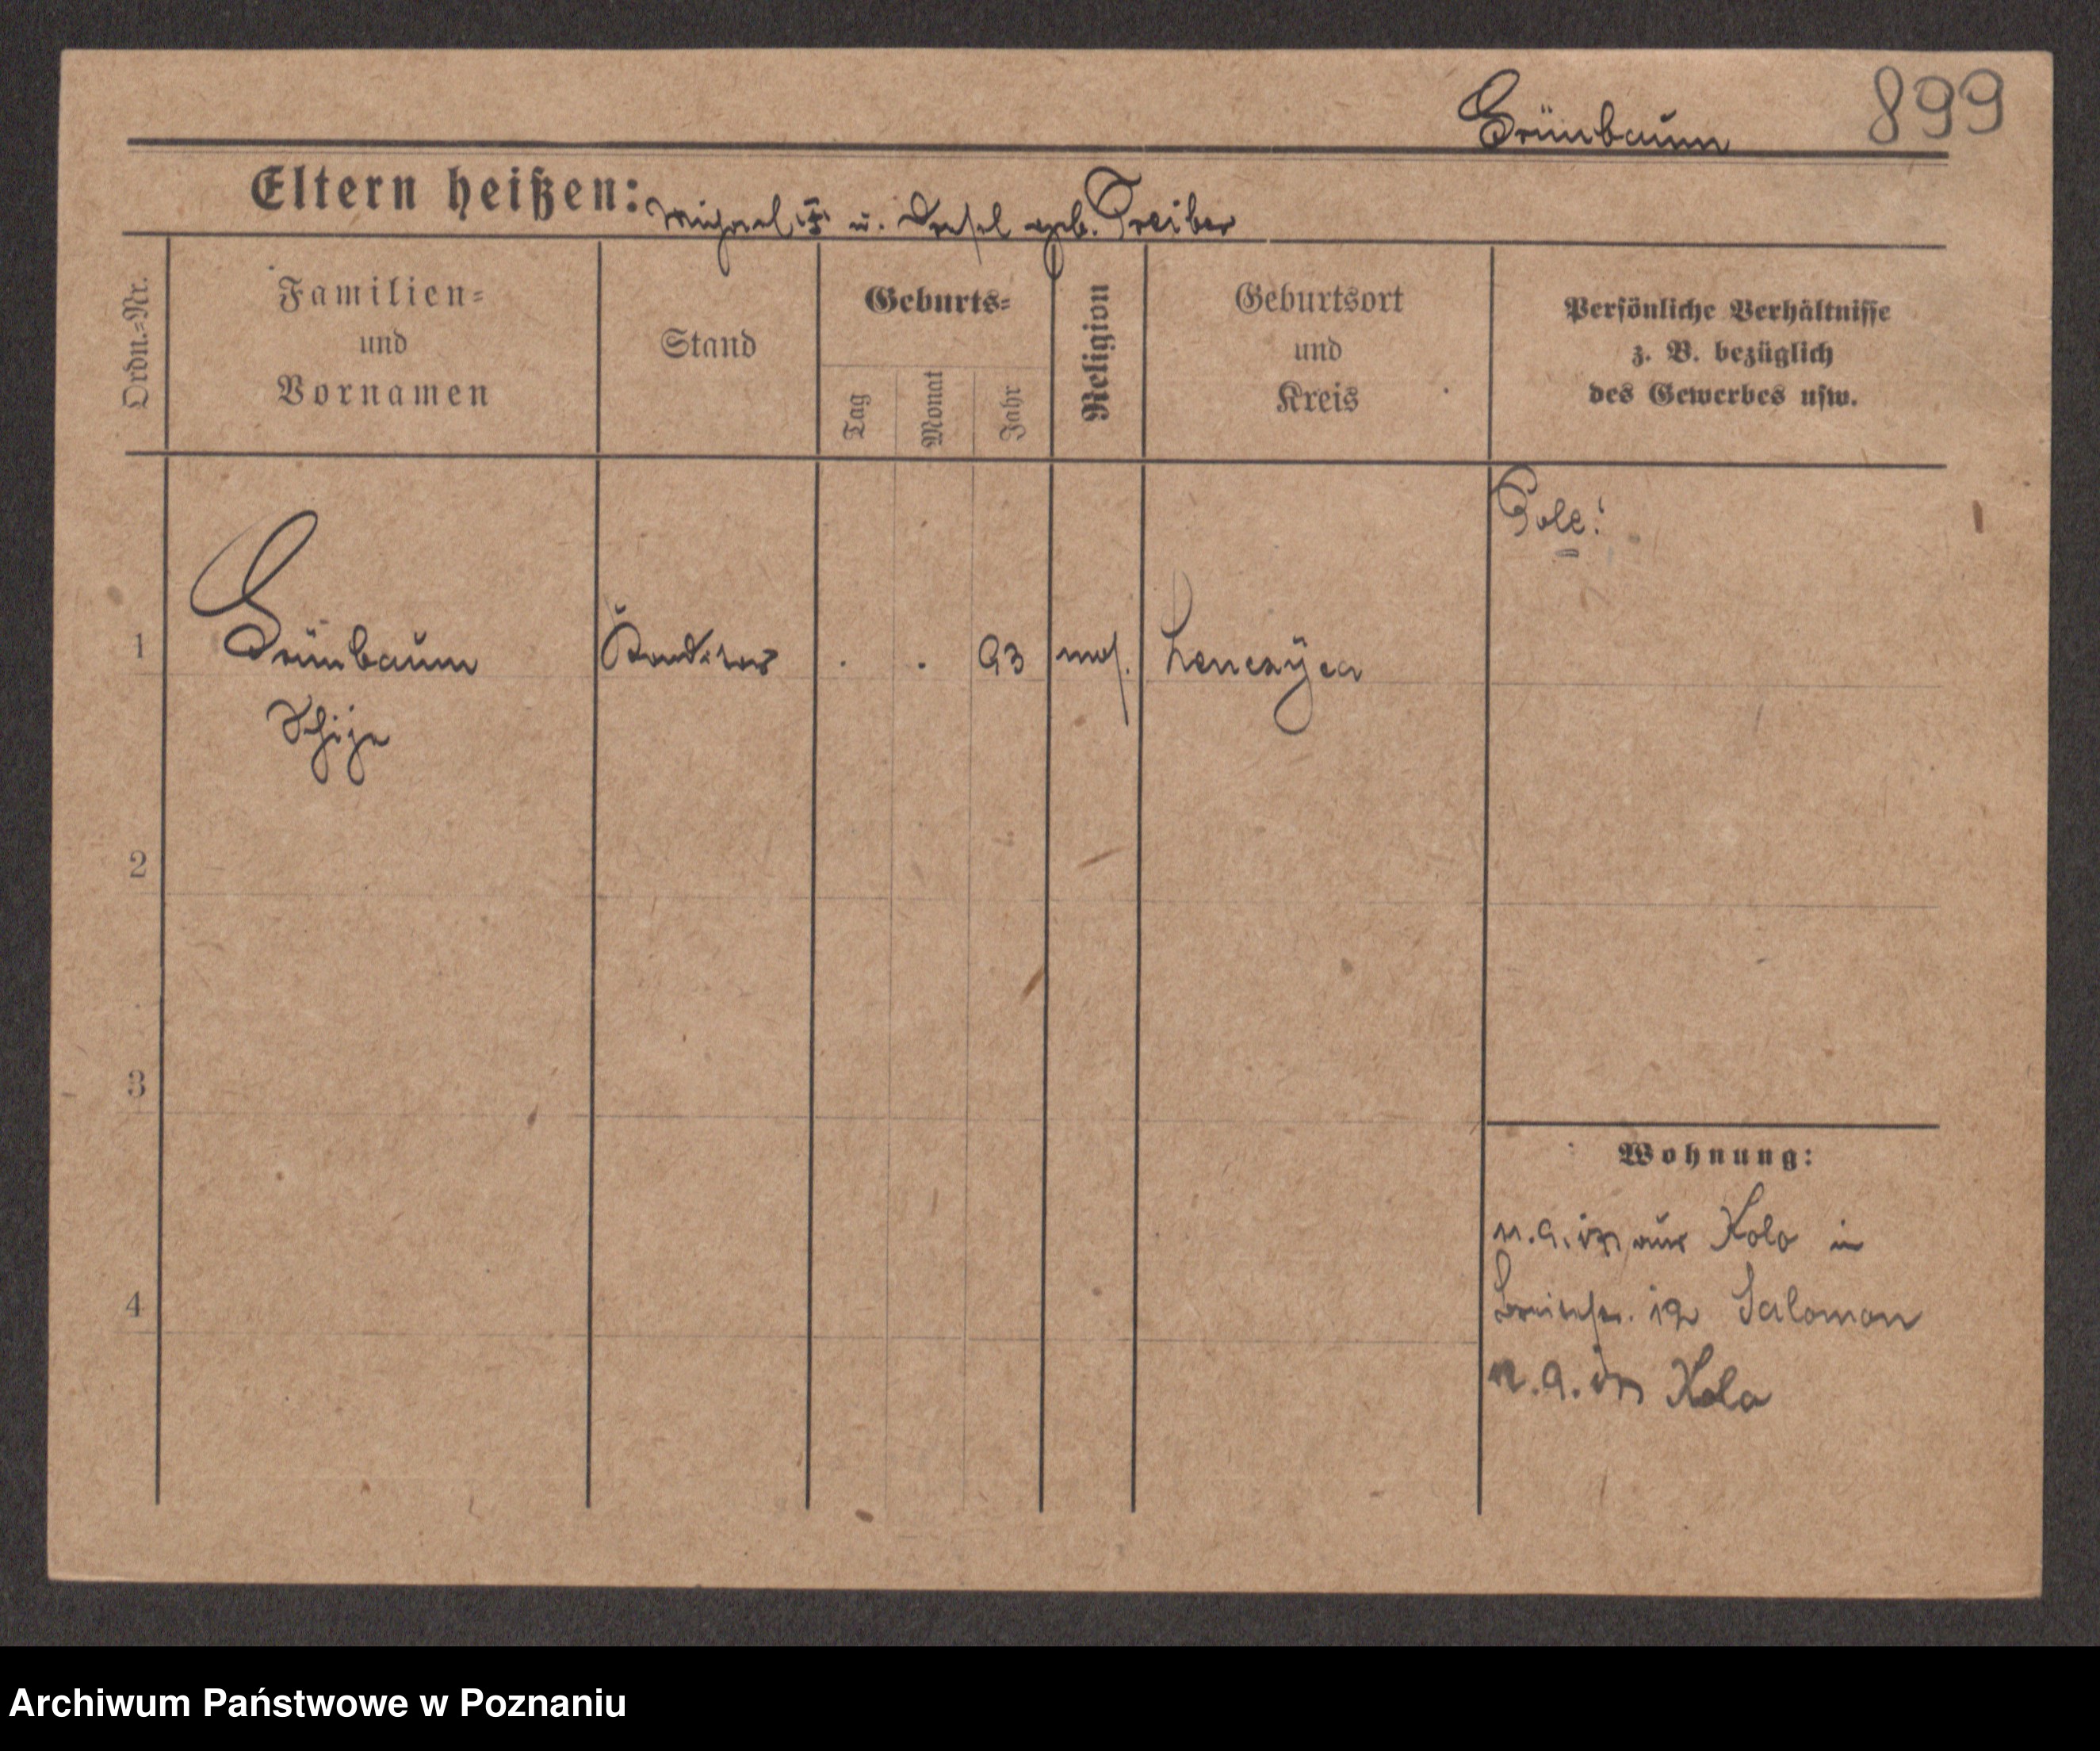 Grünbaum 899
Eltern heißen: Michael u. geb. Treiber
Ordn.=Nr.
Familien=
und
Vornamen
Stand
Geburts=
Tag
Monat
Jahr
Religion
Geburtsort
und
Kreis
Persönliche Verhältnisse
z. B. bezüglich
des Gewerbes usw.
Pole!
1 Grünbaum Konditor . . 93 mos. Lenczyca
2
3
Wohnung:
n. a. in aus Kolo in
4
Breitestr. 19 Salomon
n. a. in Kolo
Archiwum Państwowe w Poznaniu